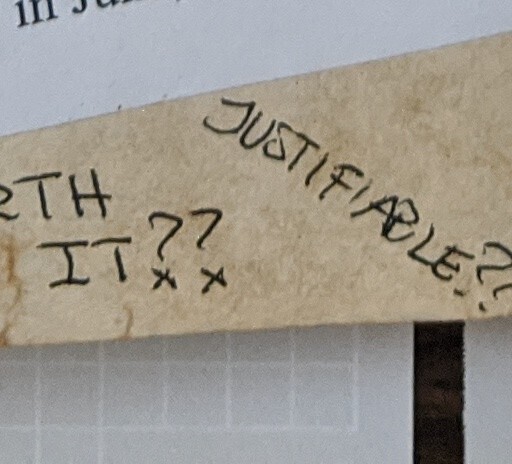 in Ju
RTH
IT??
JUSTIFIABLE??